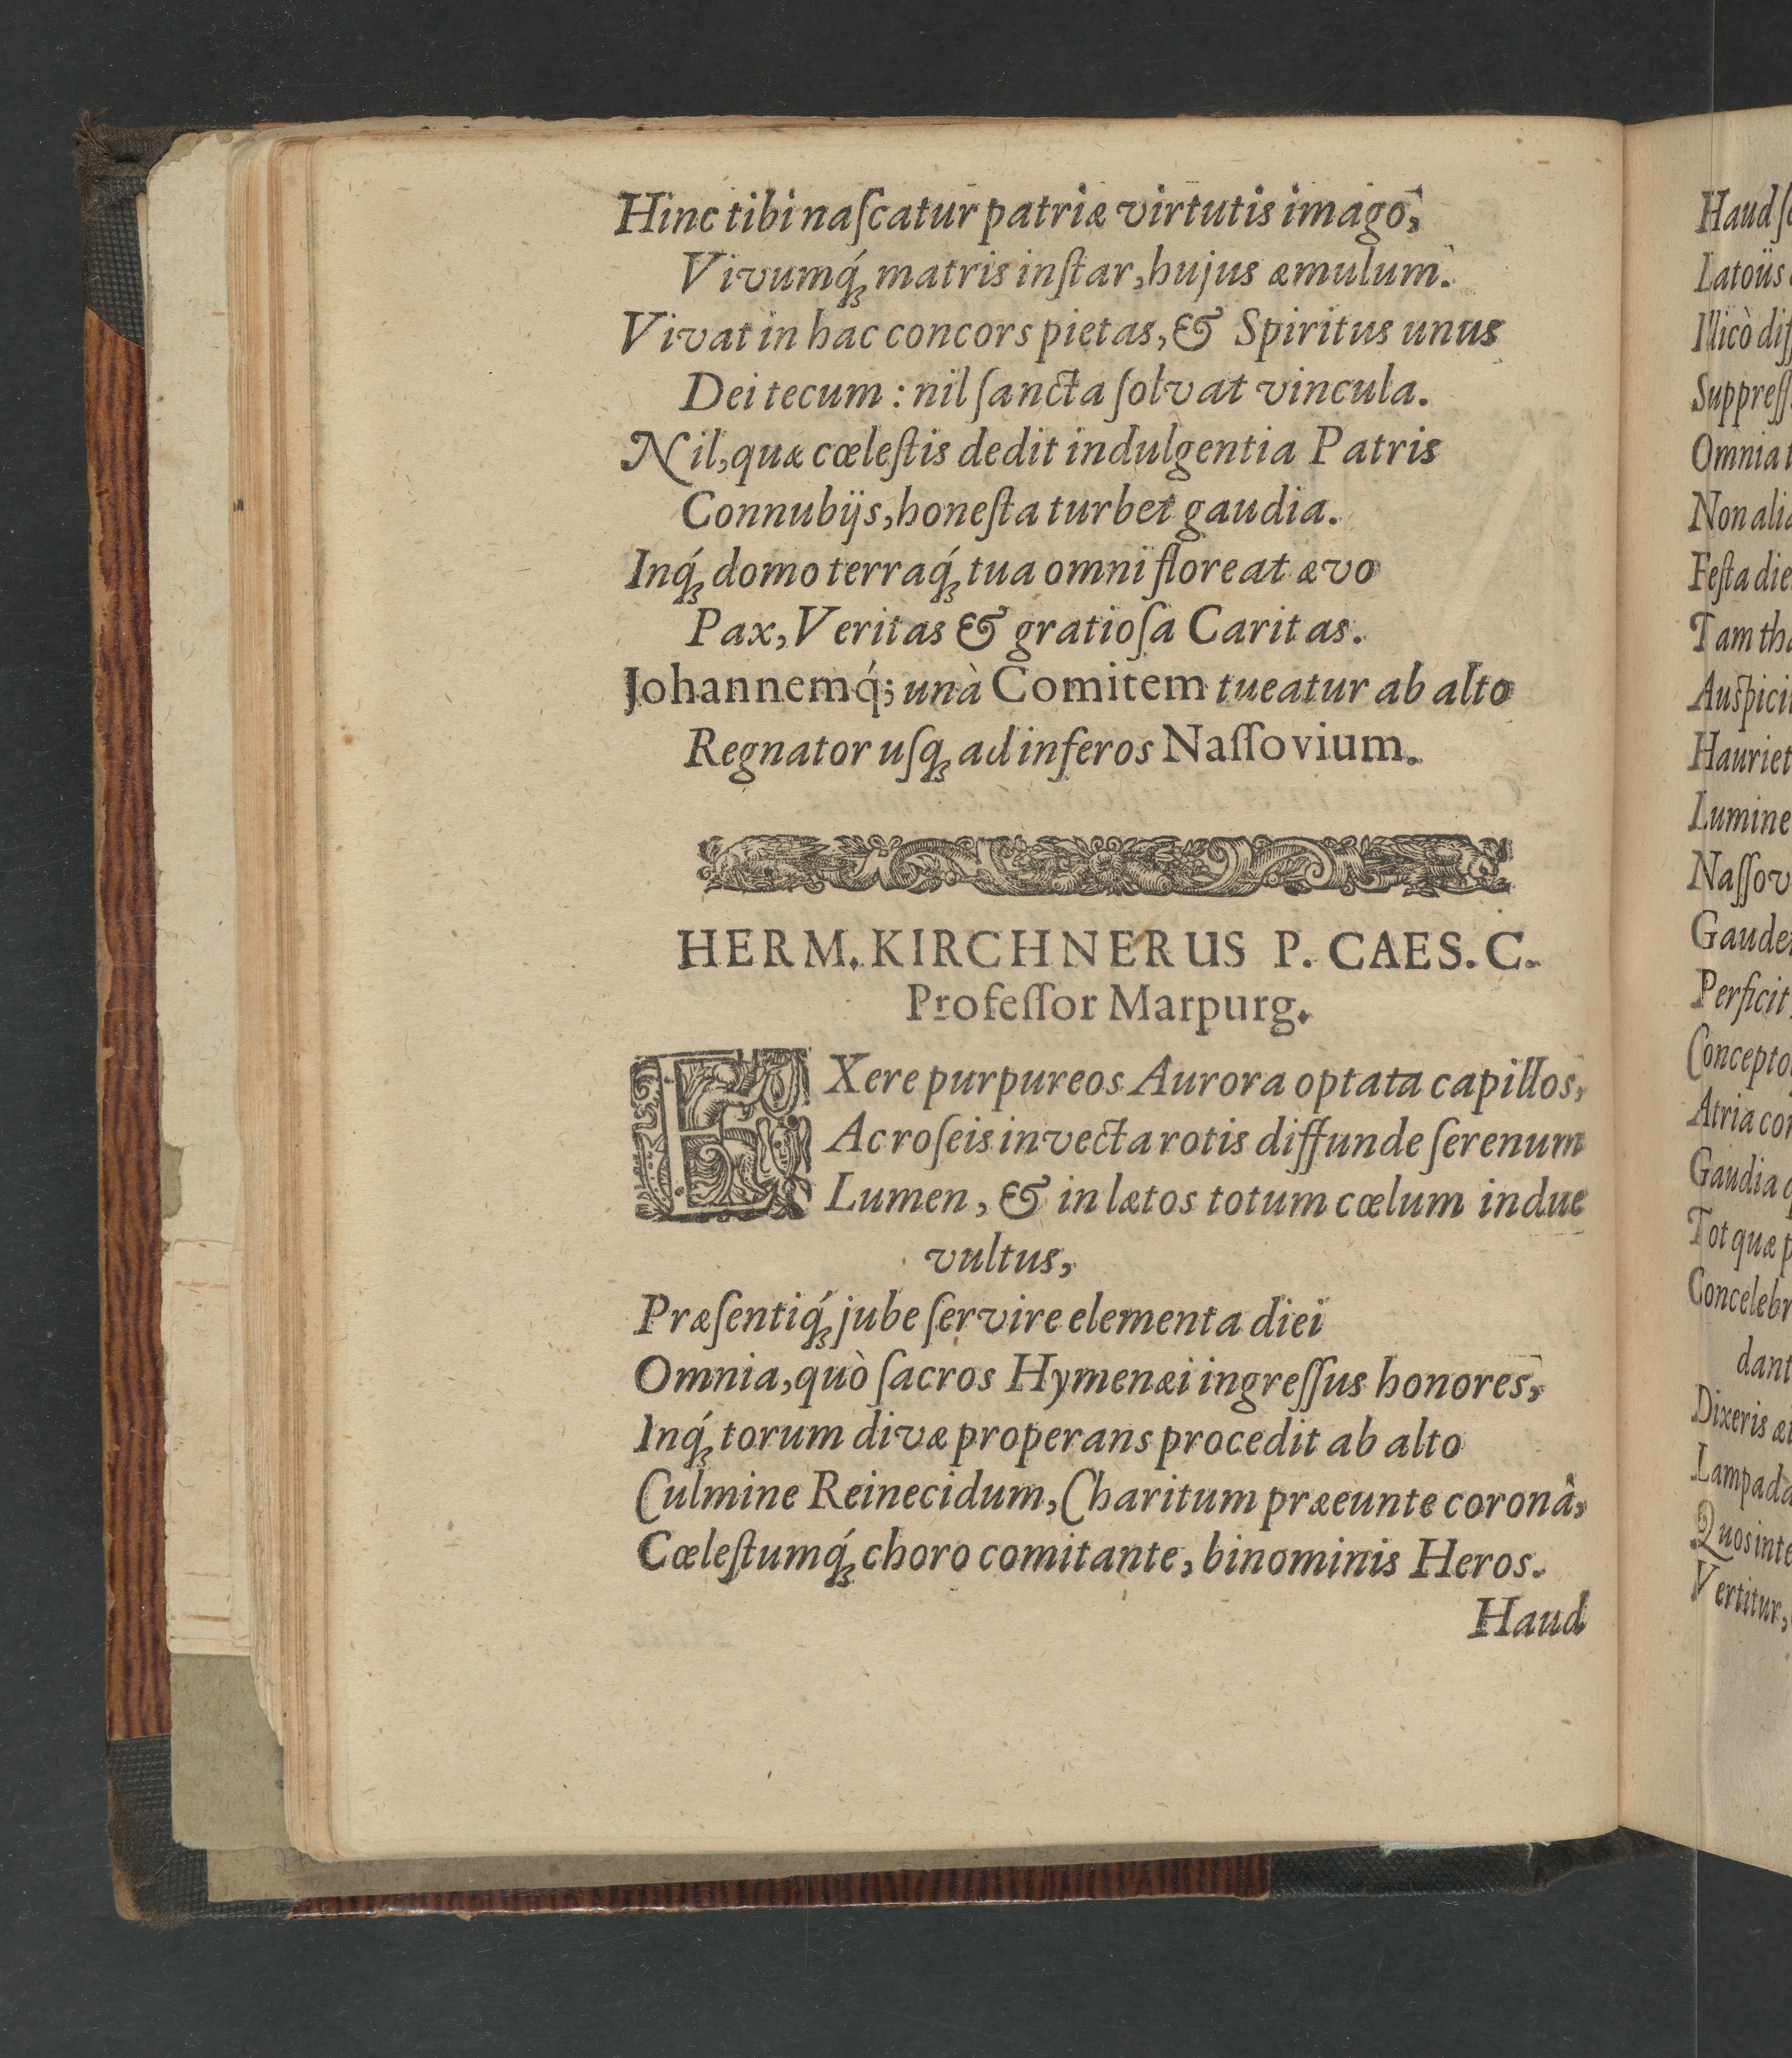 Hinc tibi naſcatur patriæ virtutis imago,
Vivumq́; matris inſtar, hujus æmulum.
Vivat in hac concors pietas, & Spiritus unus
Dei tecum : nil ſancta ſolvat vincula.
Nil, quæ cœleſtis dedit indulgentia Patris
Connubijs, honeſta turbet gaudia.
Inq́; domo terraq́; tua omni floreat ævo
Pax, Veritas & gratioſa Caritas.
Johannemq́; unà Comitem tueatur ab alto
Regnator uſq; ad inferos Naſſovium.
HERM. KIRCHNERUS P. CAES. C.
Profeſſor Marpurg.
EXere purpureos Aurora optata capillos,
Ac roſeis invecta rotis diffunde ſerenum
Lumen, & in lætos totum cœlum indue
vultus,
Præſentiq́; jube ſervire elementa diei
Omnia, quò ſacros Hymenæi ingreſſus honores,
Inq́; torum divæ properans procedit ab alto
Culmine Reinecidum, Charitum præeunte coronâ,
Cœleſtumq́; choro comitante, binominis Heros.
Haud
Haud
Latoüs
Illicò
Suppreſſ
Omnia
Non
Feſta
Tam
Auſpici
Hauriet
Lumine
Naſſov
Gaude
Perficit
Concepto
Atria
Gaudia
Tot quæ
Concelebr
dant
Dixeris
Lampada
Quos
Vertitur,